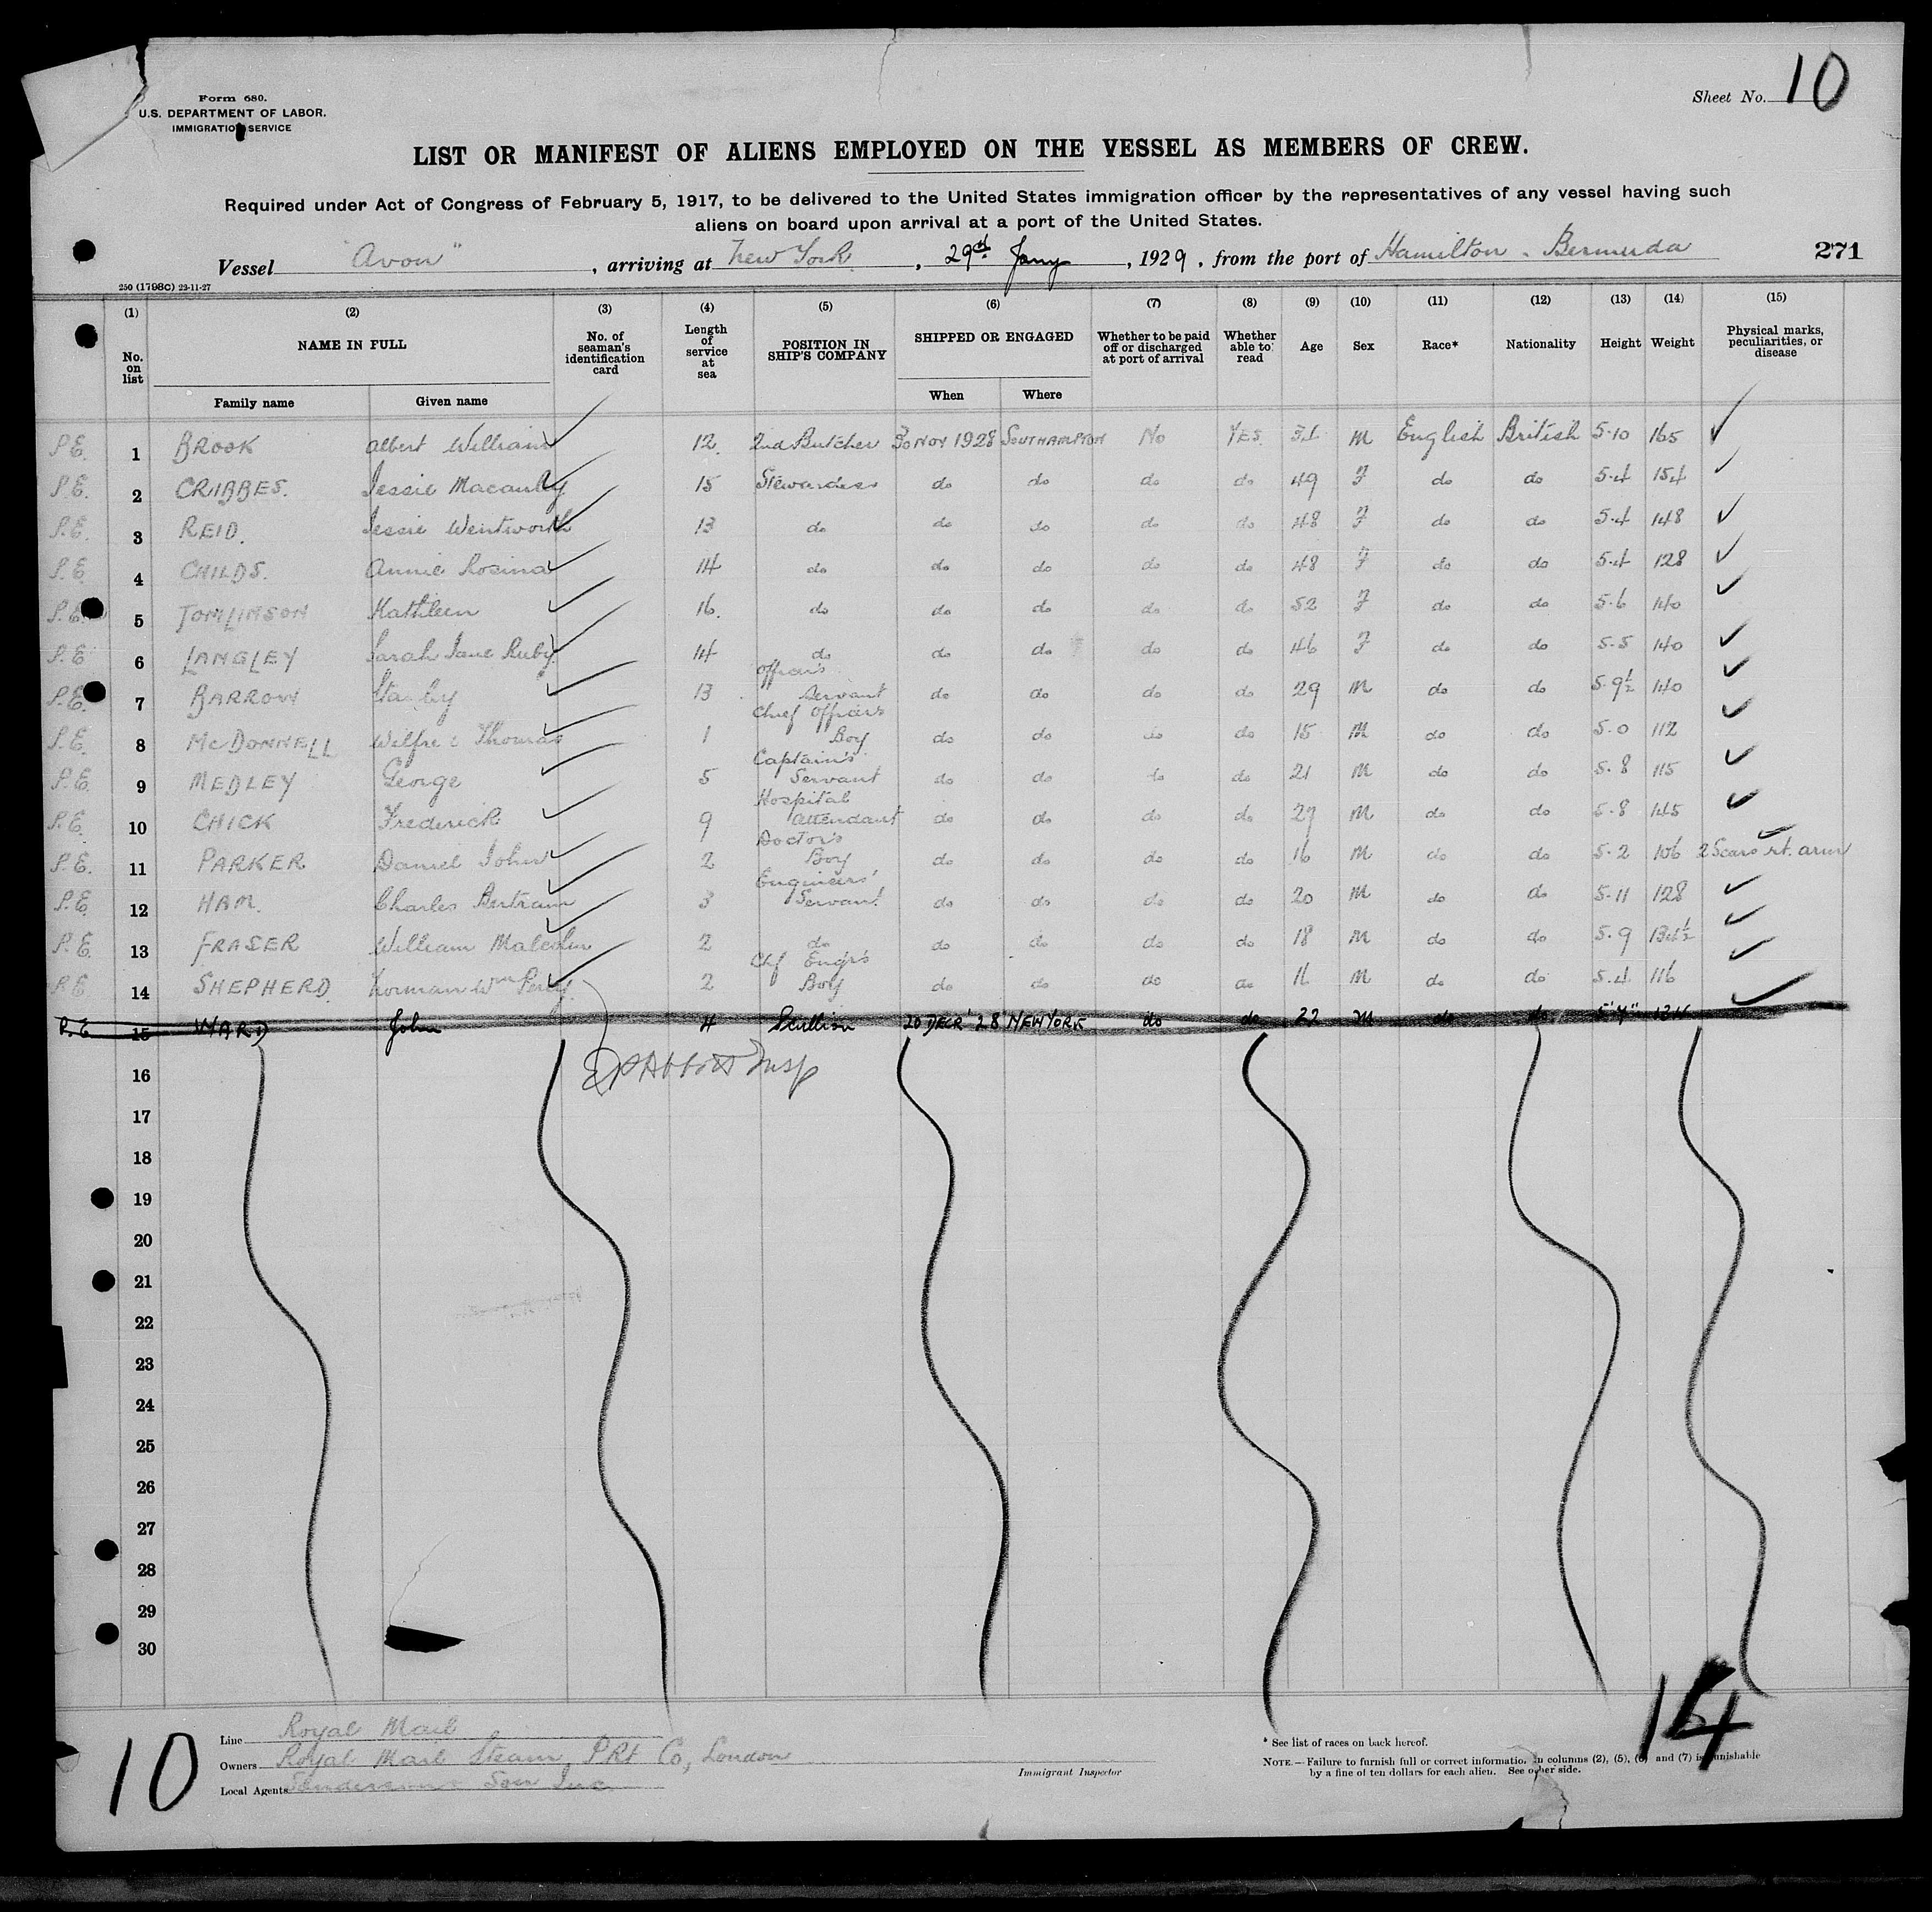 Form 680.
U.S. DEPARTMENT OF LABOR.
IMMIGRATION SERVICE
Sheet No. 10
LIST OR MANIFEST OF ALIENS EMPLOYED ON THE VESSEL AS MEMBERS OF CREW.
Required under Act of Congress of February 5, 1917, to be delivered to the United States immigration officer by the representatives of any vessel having such
aliens on board upon arrival at a port of the United States.
Vessel "Avon", arriving at New York, 29th Jany, 1929, from the port of Hamilton - Bermuda 271
250 (1798C) 22-11-27
(1) (2) (3) (4) (5) (6) (7) (8) (9) (10) (11) (12) (13) (14) (15)
No. on list NAME IN FULL No. of seaman's identification card Length of service at sea POSITION IN SHIP'S COMPANY SHIPPED OR ENGAGED Whether to be paid off or discharged at port of arrival Whether able to read Age Sex Race* Nationality Height Weight Physical marks, peculiarities, or disease
Family name Given name When Where
P.E. 1 BROOK Albert William 12. 2nd Butcher 30 NOV 1928 SOUTHAMPTON No YES M English British 5.10 165
P.E. 2 CRIBBES. Jessie Macaulay 15 Stewardess do do do do 49 F do do 5.4 154
P.E. 3 REID. Jessie Wentworth 13 do do do do do 48 F do do 5.4 148
P.E. 4 CHILDS. Annie Rosina 14 do do do do do 48 F do do 5.4 128
P.E. 5 TOMLINSON Kathleen 16. do do do do do 52 F do do 5.6 140
P.E. 6 LANGLEY Sarah Jane Ruby. 14 do do do do do 46 F do do 5.5 140
P.E. 7 BARROW Stanley 13 Officer's Servant do do do do 29 M do do 5.9½ 140
P.E. 8 McDONNELL Wilfred Thomas 1 Chief Officer's Boy do do do do 15 M do do 5.0 112
P.E. 9 MEDLEY George 5 Captain's Servant do do do do 21 M do do 5.8 115
P.E. 10 CHICK Frederick 9 Hospital Attendant do do do do 27 M do do 5.8 145
P.E. 11 PARKER Daniel John 2 Doctor's Boy do do do do 16 M do do 5.2 106 2 Scars rt. arm
P.E. 12 HAM. Charles Bertram 3 Engineers' Servant do do do do 20 M do do 5.11 128
P.E. 13 FRASER William Malcolm 2 do do do do do 18 M do do 5.9 134½
P.E. 14 SHEPHERD. Norman Wm Percy. 2 Chf Engr's Boy do do do do 16 M do do 5.4 116
P.E. 15 WARD John 4 Scullion 20 DECR '28 NEW YORK do do 22 M do do 5'7"
16
Insp
17
18
19
20
21
22
23
24
25
26
27
28
29
30
10
14
Line Royal Mail
Owners Royal Mail Steam Pkt Co, London
Local Agents Sanderson & Son Inc.
Immigrant Inspector
* See list of races on back hereof.
NOTE.—Failure to furnish full or correct information in columns (2), (5), (6) and (7) is punishable
by a fine of ten dollars for each alien. See other side.